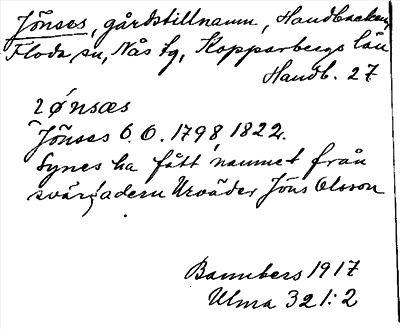 Jönses, gårdstillnamn, Handbacken,
Floda sn, Nås tg, Kopparbergs län
Handb. 27
Jönses O. O. 1798, 1822.
Synes ha fått namnet från
svärfadern Jöns Olsson
Bannbers 1917
Ulma 321:2